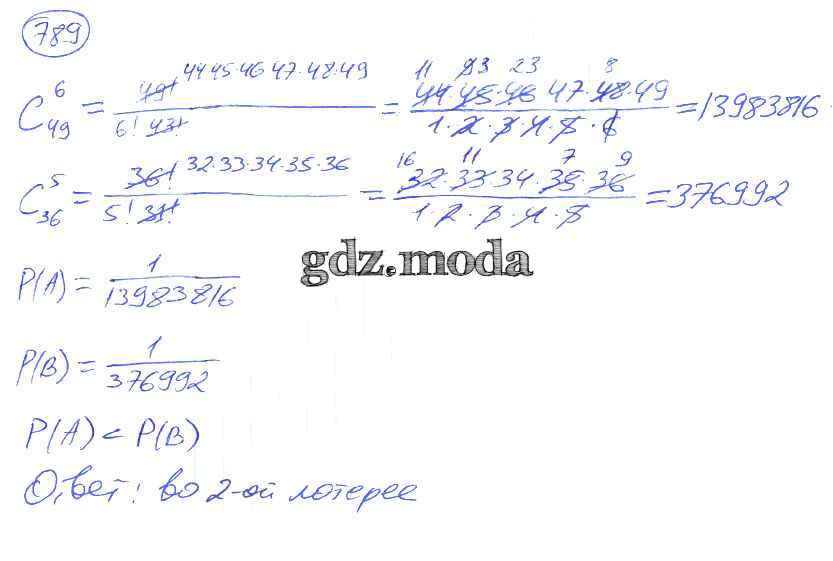 789
C₄₉⁶ = 49! 44 45·46 47·48·49 / 6! 43! = 44·45·46 47·48·49 / 1·2·3·4·5·6 = 13983816.
11 3 23 8
C₃₆⁵ = 36! 32·33·34·35·36 / 5! 31! = 32·33·34·35·36 / 1·2·3·4·5 = 376992
16 11 7 9
gdz.moda
P(A) = 1 / 13983816
P(B) = 1 / 376992
P(A) < P(B)
Ответ: во 2-ой лотерее